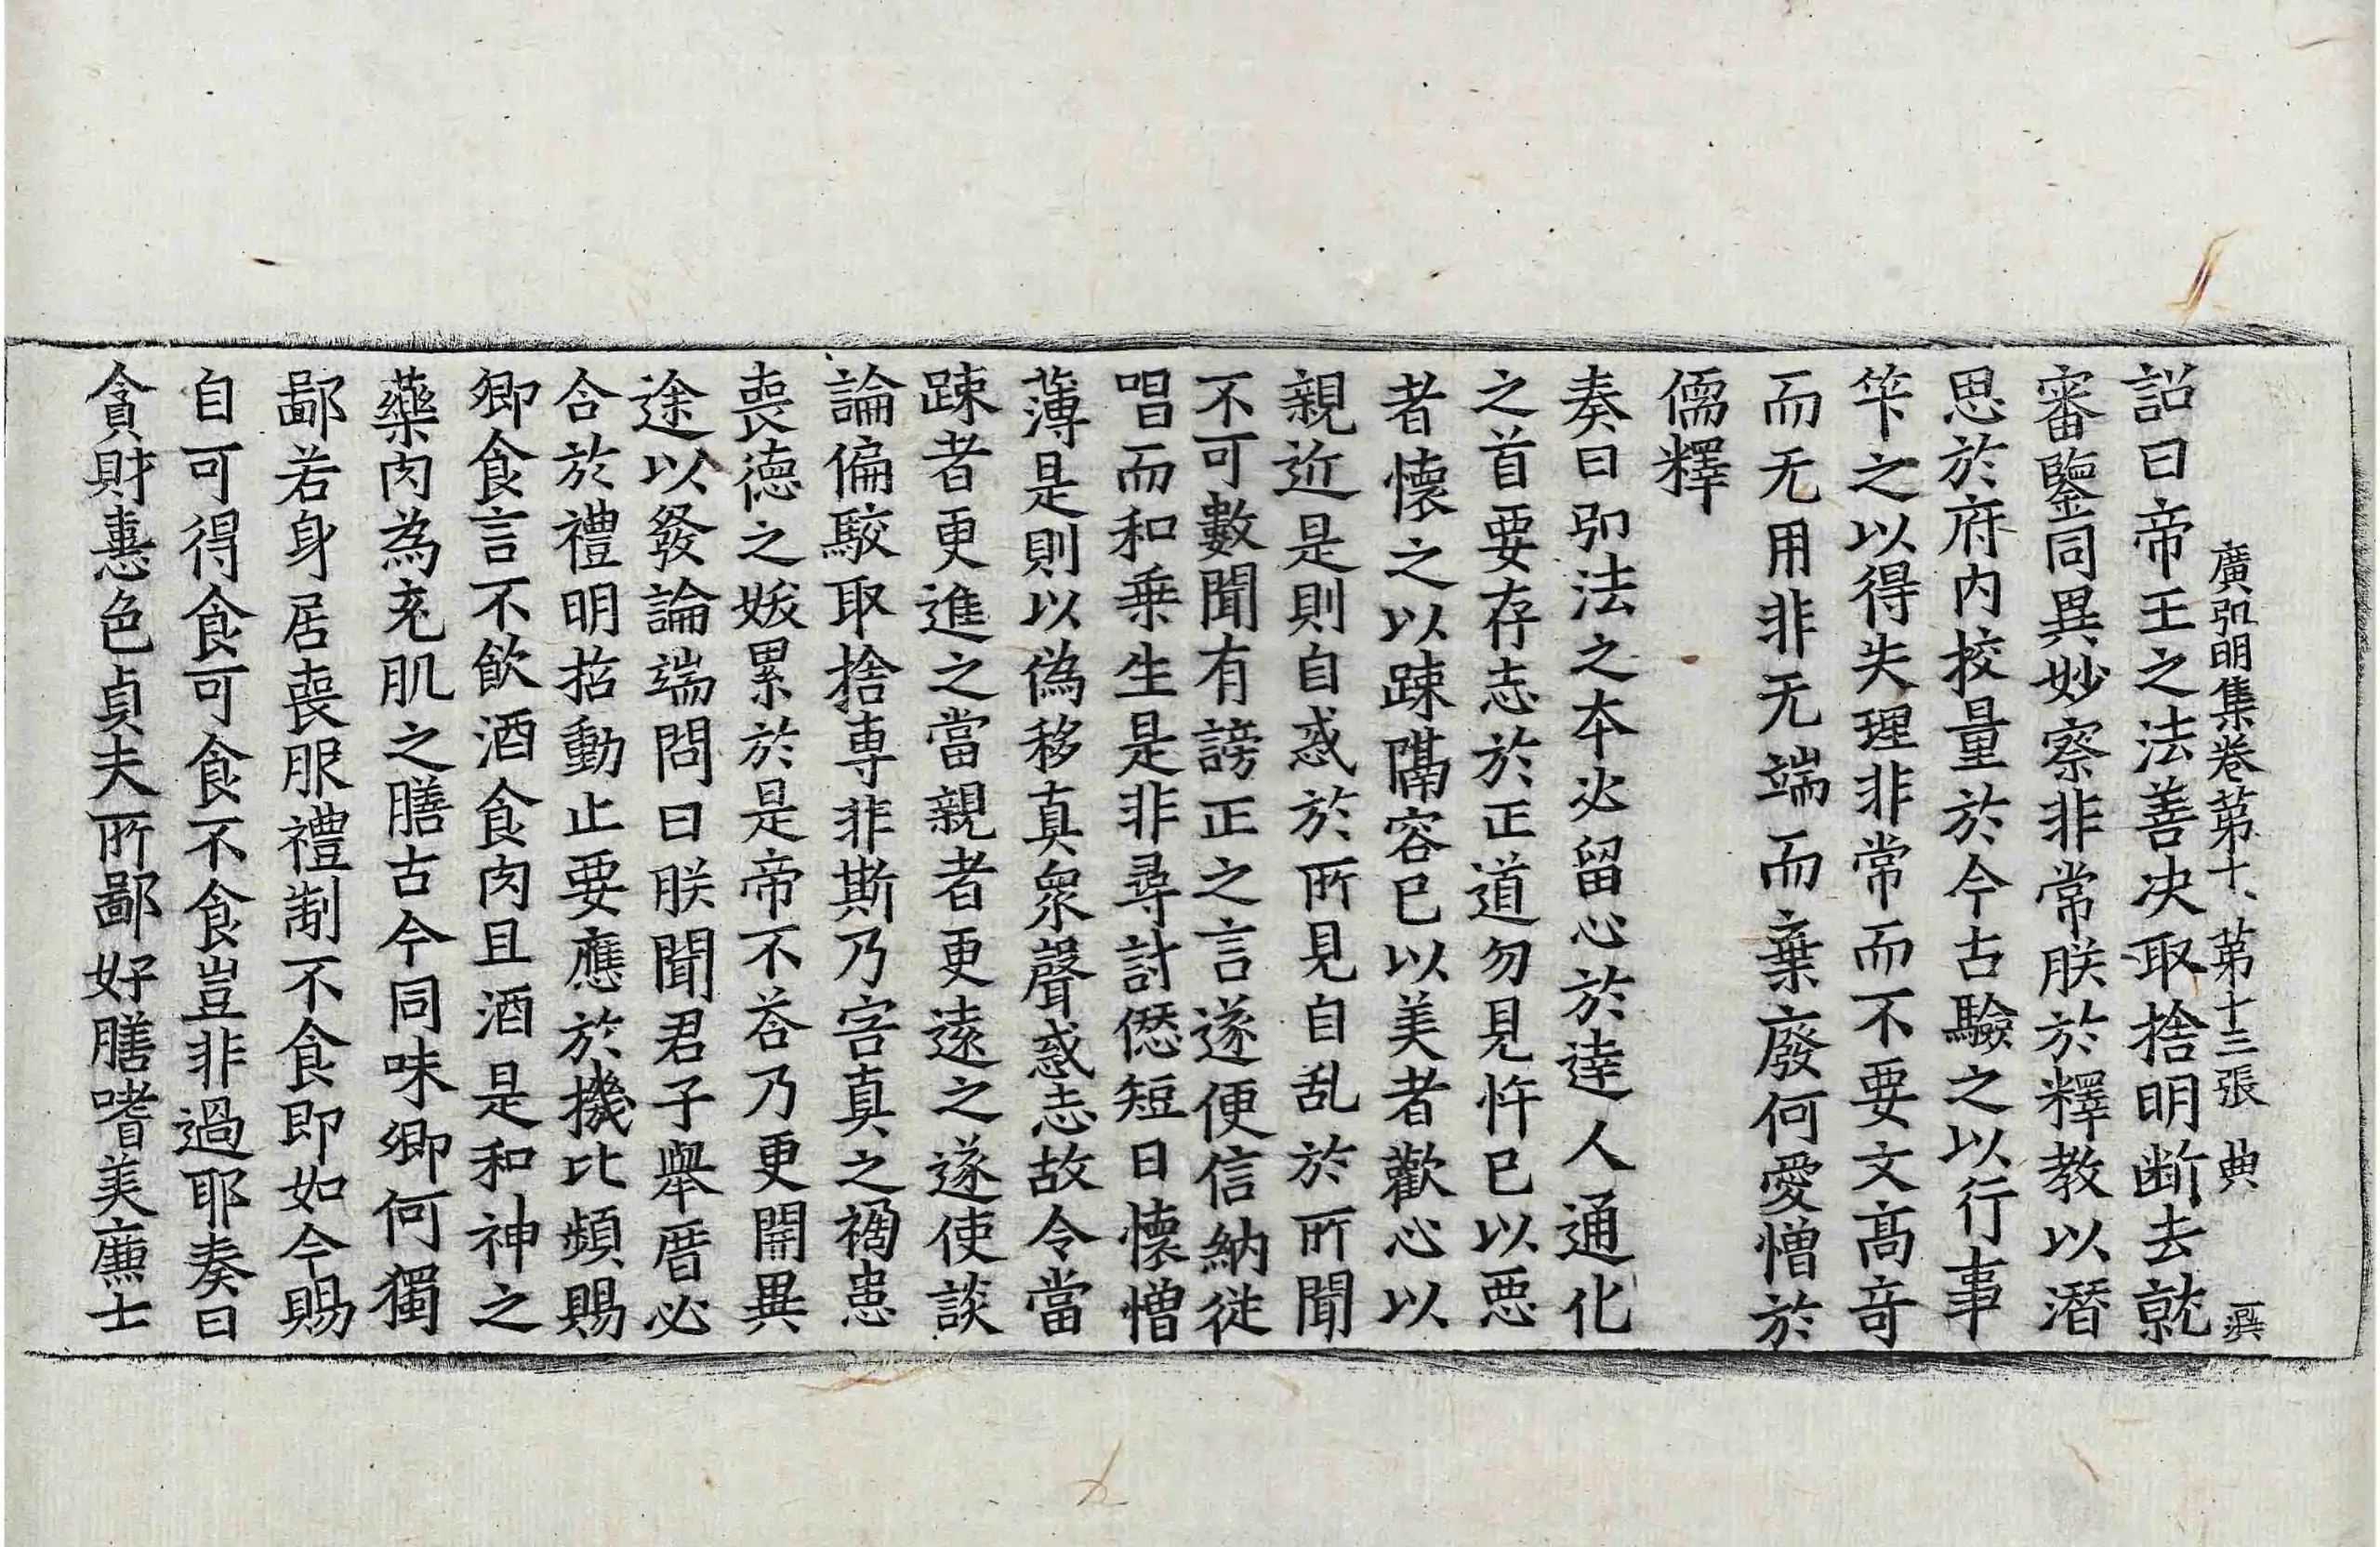 廣弘明集卷第十 第十三張 典
詔曰帝王之法善决取捨明断去就
審鑒同異妙察非常朕於釋教以潛
思於府内挍量於今古驗之以行事
筭之以得失理非常而不要文髙竒
而无用非无端而棄廢何愛憎於
儒釋
奏曰弘法之本必留心於達人通化
之首要存志於正道勿見忤已以惡
者懷之以踈隔容已以美者歡心以
親近是則自惑於所見自乱於所聞
不可數聞有謗正之言遂便信納従
唱而和乗生是非尋討愆短日懷憎
薄是則以偽移真衆聲惑志故令當
踈者更進之當親者更遠之遂使談
論偏駮取捨専非斯乃害真之禍患
喪徳之妭累於是帝不荅乃更開異
途以發論端問曰朕聞君子舉厝必
合於禮明哲動止要應於機比頻賜
卿食言不飲酒食肉且酒是和神之
藥肉為充肌之膳古今同味卿何獨
鄙若身居喪服禮制不食即如今賜
自可得食可食不食豈非過耶奏曰
貪財憙色貞夫所鄙好膳嗜美廉士